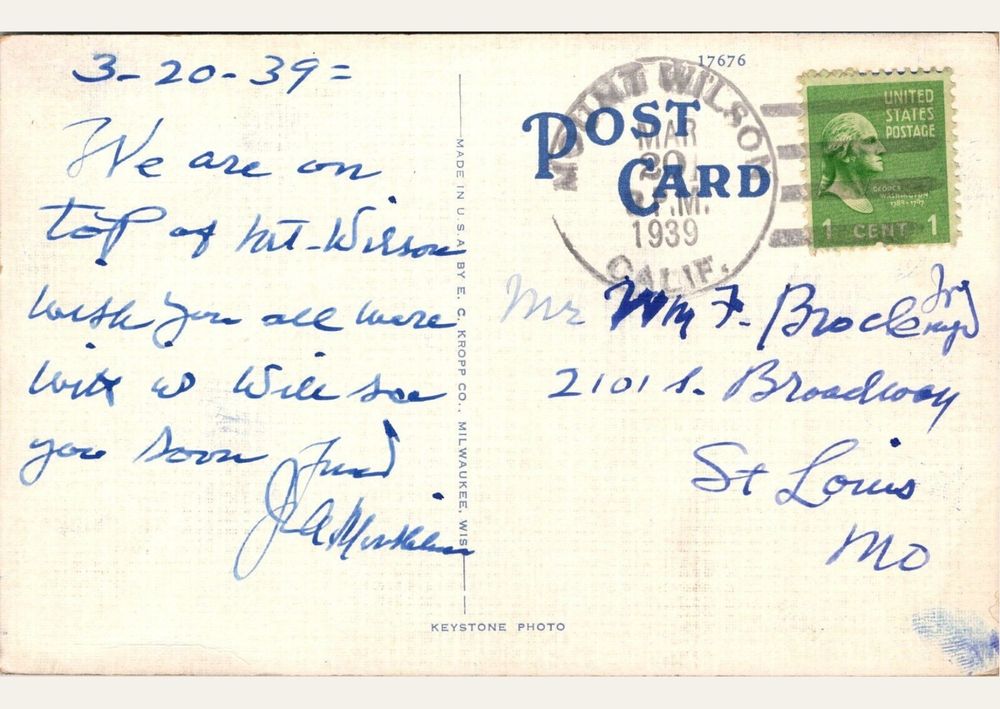 3-20-39=
We are on
top of Mt-Wilson
wish you all were
with us Will see
you soon
J A
MADE IN U.S.A BY E. C. KROPP CO., MILWAUKEE, WIS
KEYSTONE PHOTO
17676
POST
CARD
MOUNT WILSON
MAR
20
P.M.
1939
CALIF.
UNITED
STATES
POSTAGE
GEORGE
WASHINGTON
1789-1797
1 CENT 1
Mr Wm F. Brock
2101 S. Broadway
St Louis
MO